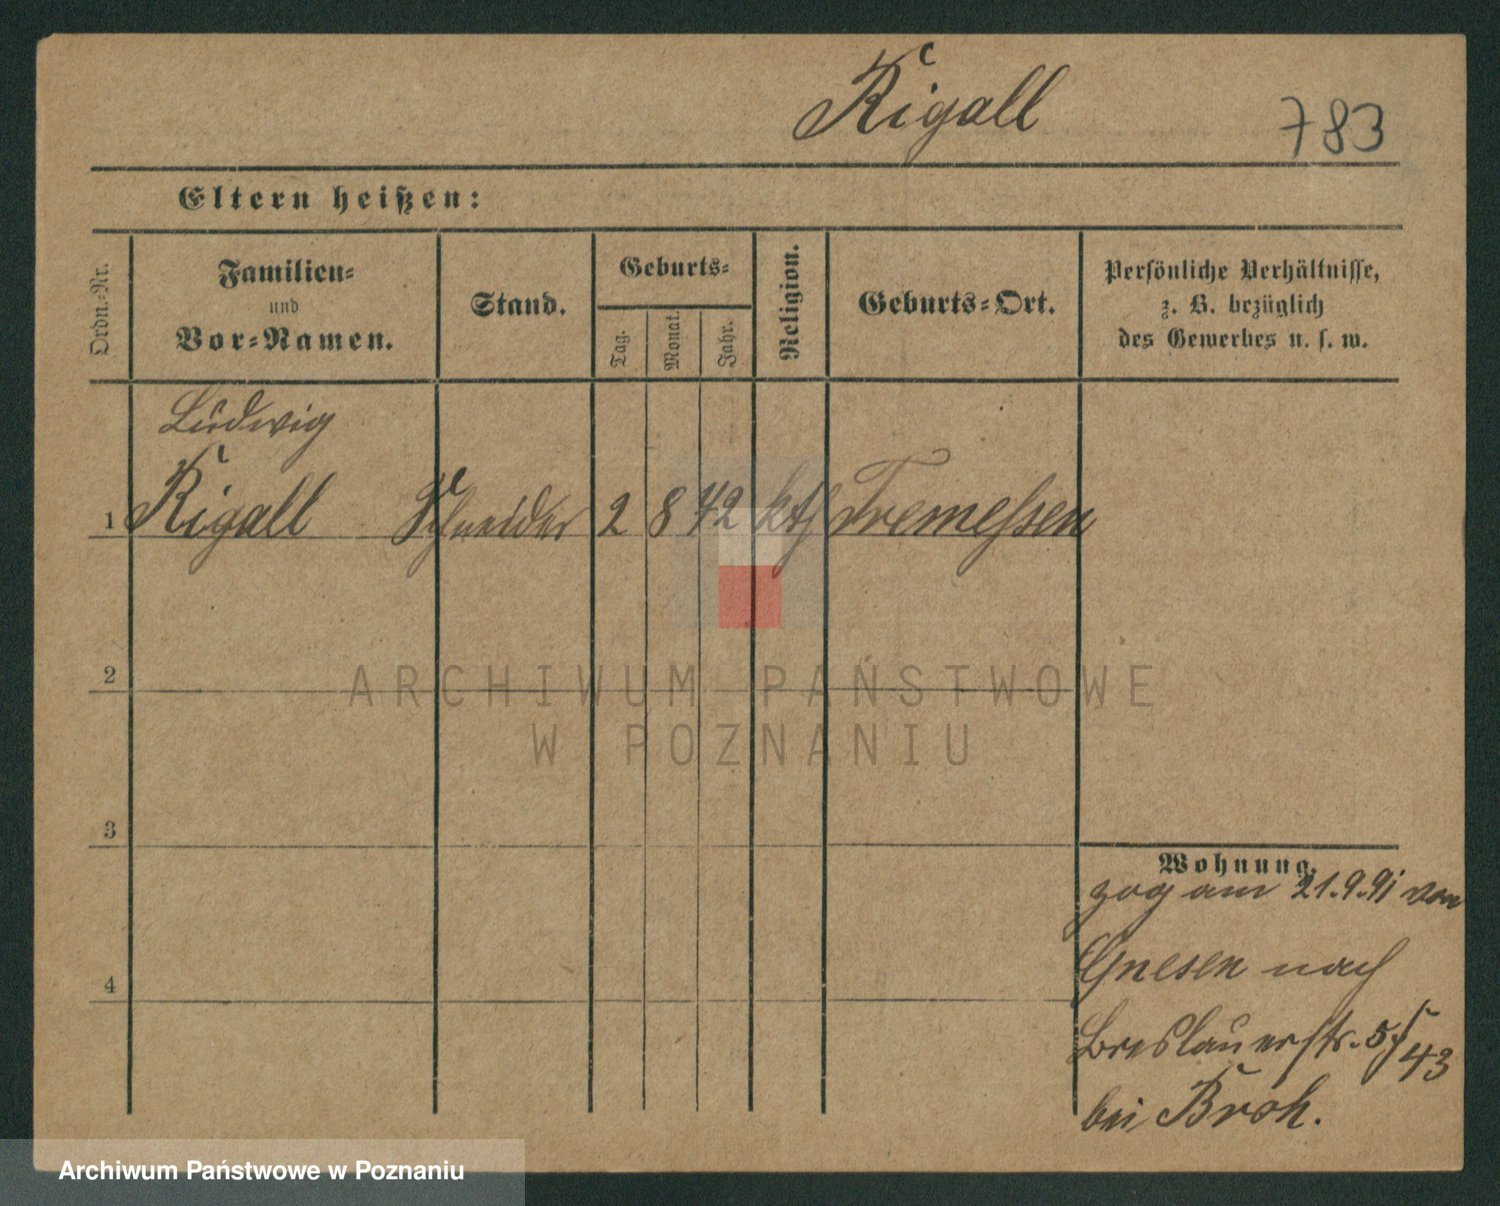 Rigall
783
Eltern heißen:
Ordn.-Nr.
Familien-
und
Vor-Namen.
Stand.
Geburts-
Tag.
Monat.
Jahr.
Religion.
Geburts-Ort.
Persönliche Verhältnisse,
z. B. bezüglich
des Gewerbes u. s. w.
Ludwig
1 Rigall Schneider 2 8 42 kth Tremessen
2
3
4
Wohnung.
zog am 21.9.91 von
Gnesen nach
Breslauerstr.
43
bei Broh.
ARCHIWUM PAŃSTWOWE
W POZNANIU
Archiwum Państwowe w Poznaniu